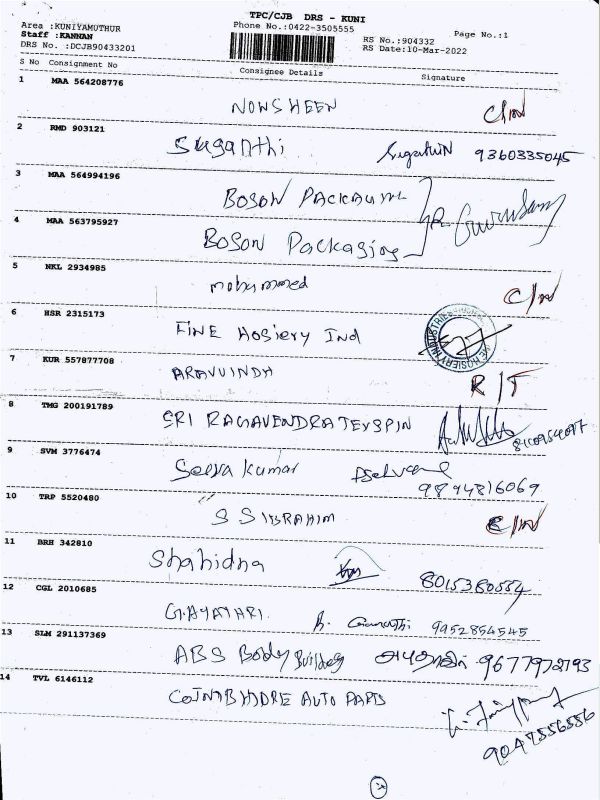 TPC/CJB DRS - KUNI
Area :KUNIYAMUTHUR Phone No.:0422-3505555
Staff :KANNAN RS No.:904332 Page No.:1
DRS No. :DCJB90433201 RS Date:10-Mar-2022
S No Consignment No Consignee Details Signature
1 MAA 564208776
NOWSHEEN
2 RMD 903121
Suganthi 9360335045
3 MAA 564994196
BOSON
4 MAA 563795927
BOSON Packaging
5 NKL 2934985
mohammed
6 HSR 2315173
FINE Hosiery Ind
7 KUR 557877708
ARAVUINDH R/T
8 TMG 200191789
SRI
9 SVM 3776474
Selva Kumar
9894816069
10 TRP 5520480
S SIBRAHIM
11 BRH 342810
Shahidha 8015380554
12 CGL 2010685
GAYATHRI. 9952854545
13 SLM 291137369
ABS Body Building 9677972793
14 TVL 6146112
AUTO PARTS
9047556556